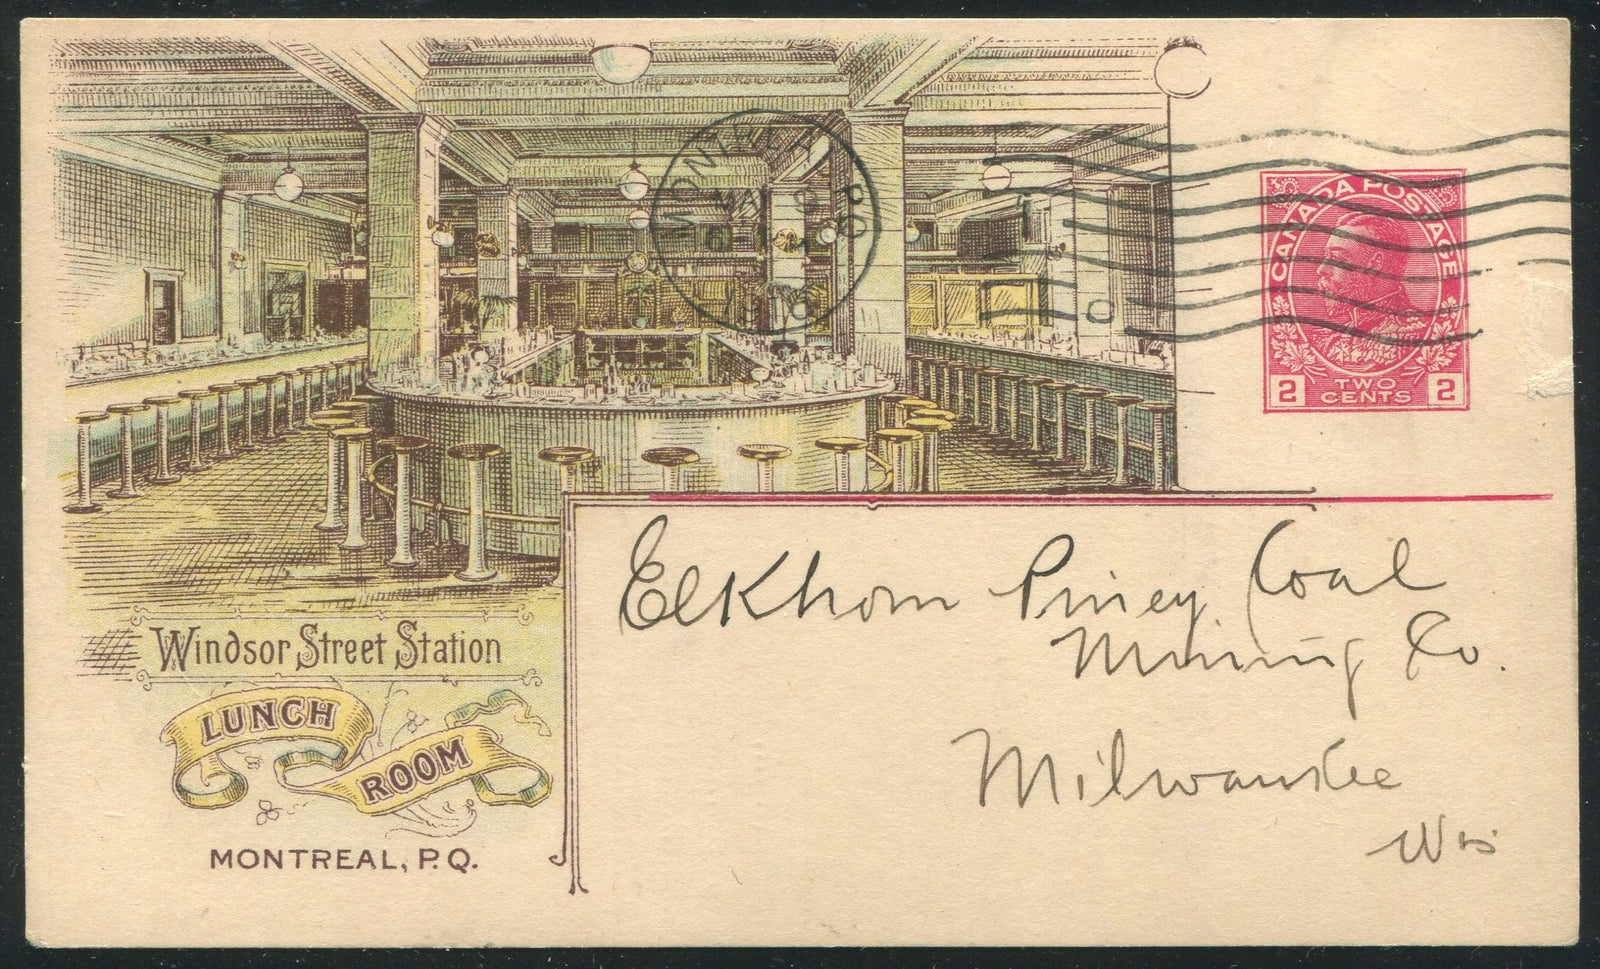 MONTREAL P.Q.
1916
CANADA POSTAGE
2 TWO CENTS 2
Elkhorn Piney Coal
Mining Co.
Milwaukee
Wis
Windsor Street Station
LUNCH
ROOM
MONTREAL, P.Q.